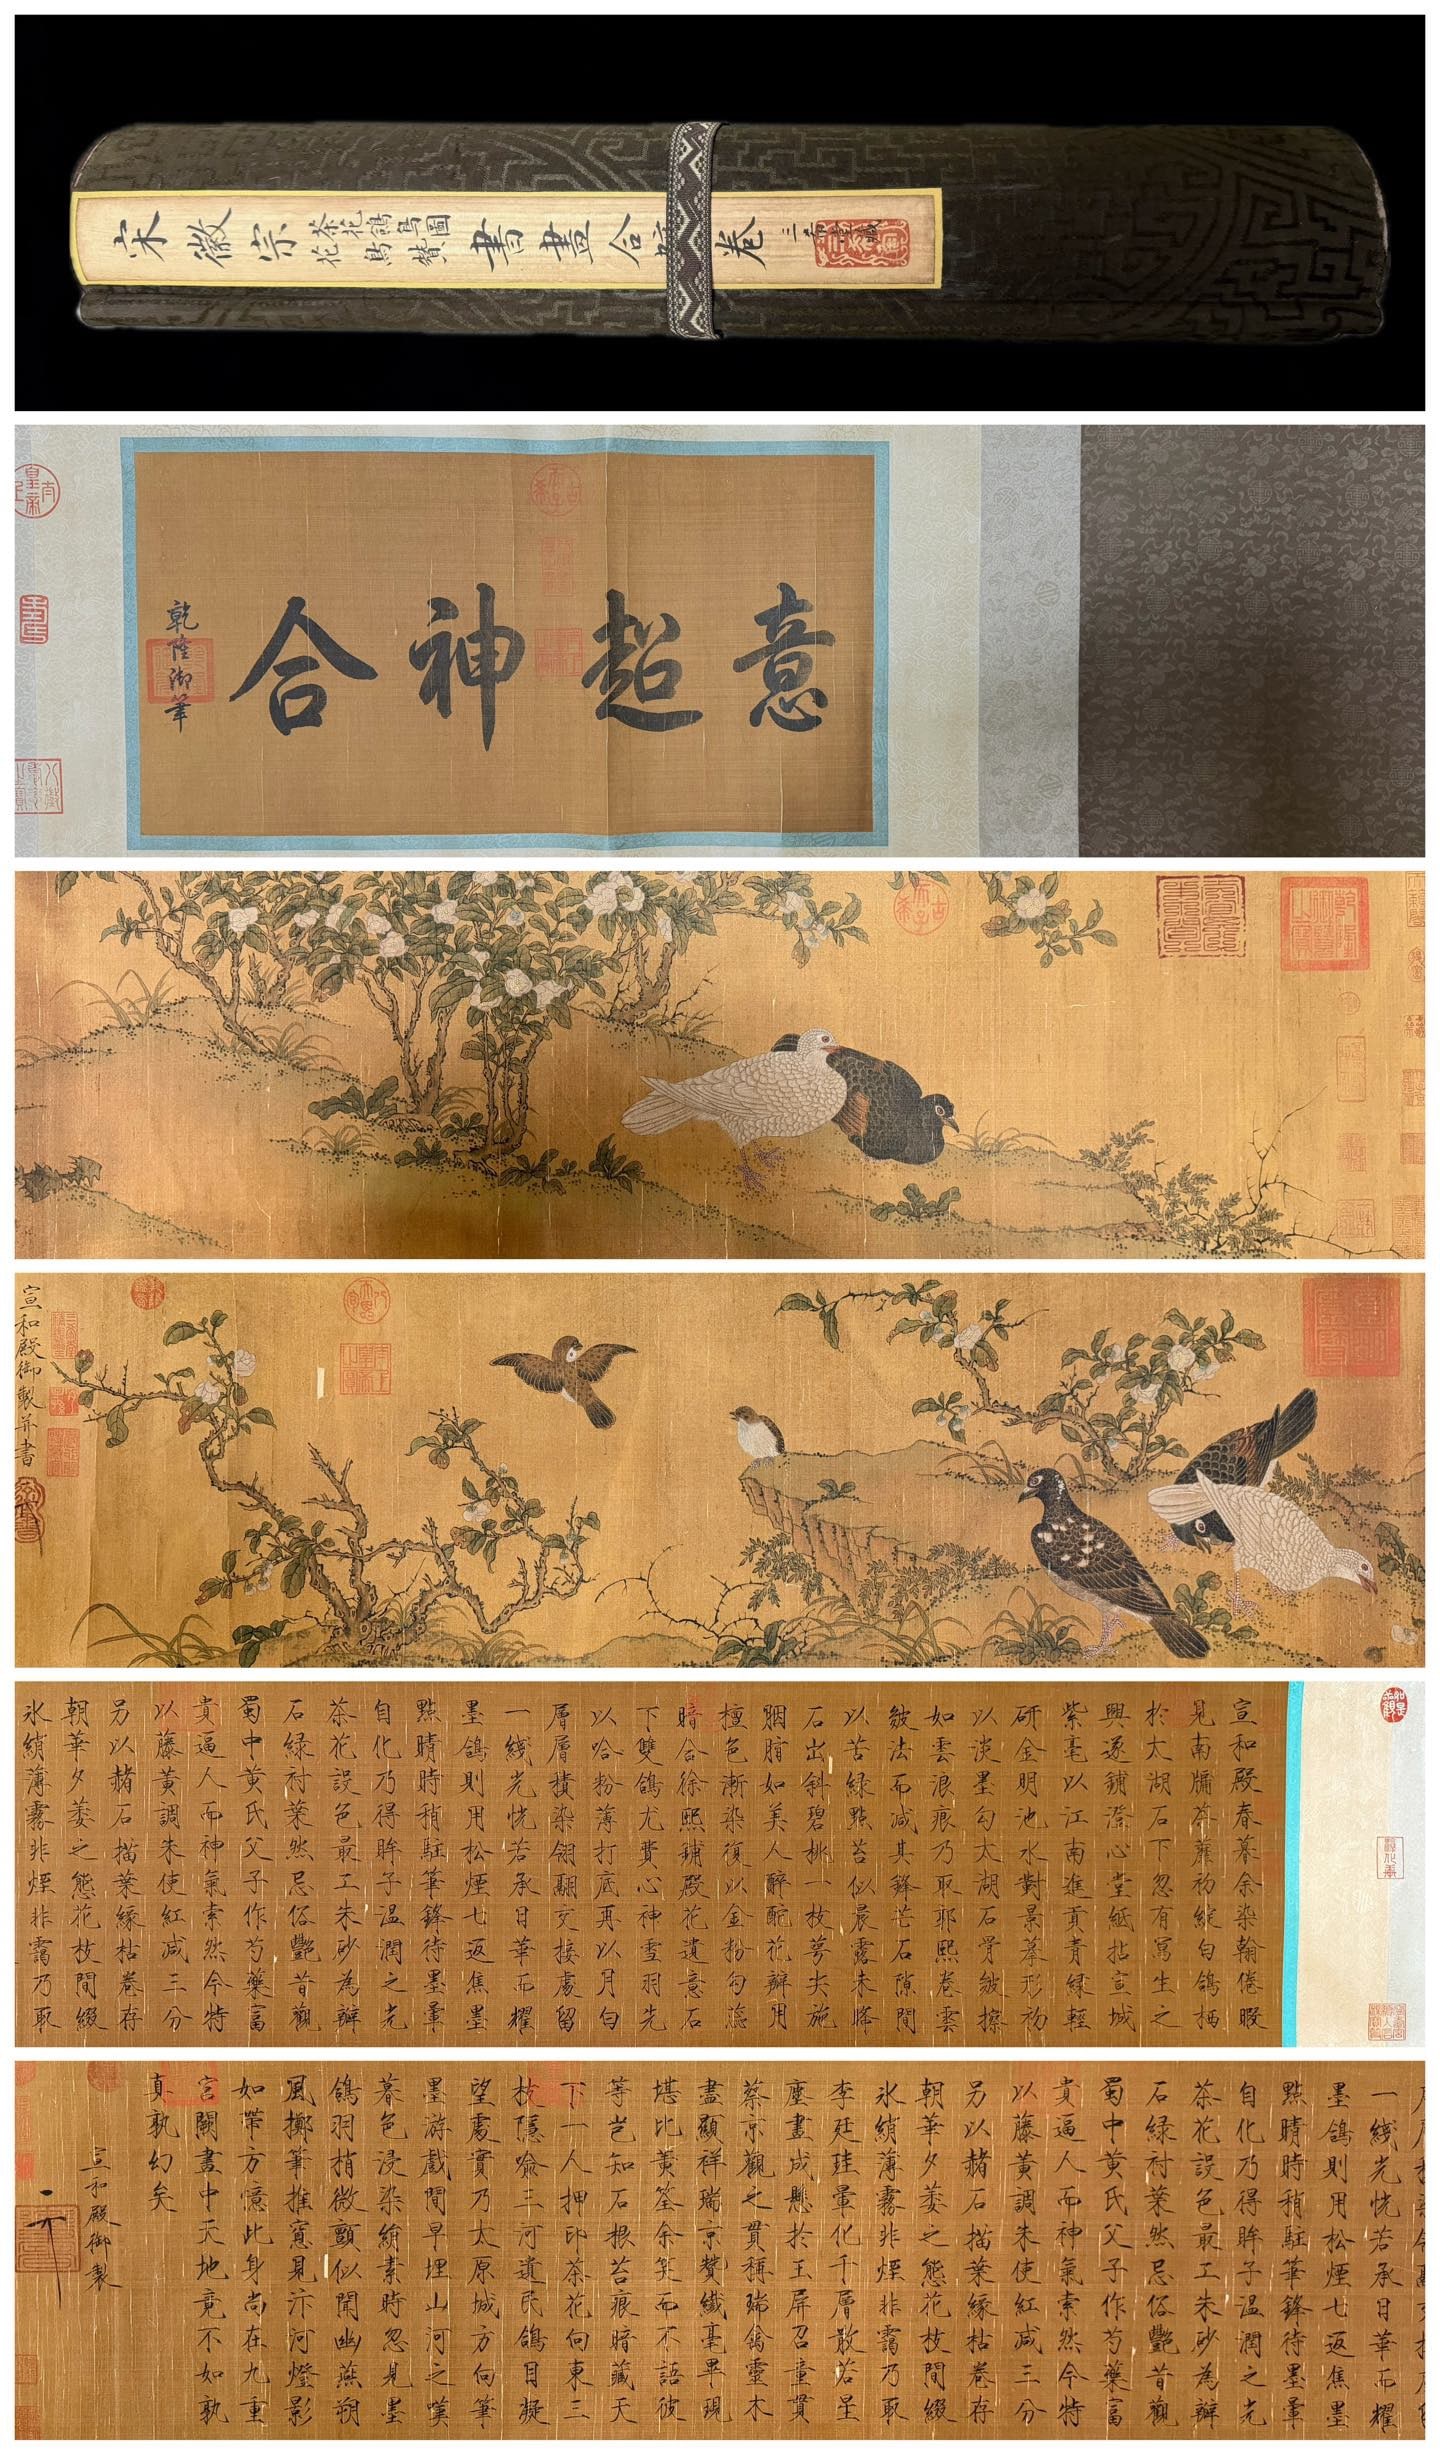 宋徽宗
茶花鴿鳥圖
花鳥贊
書畫合璧卷
三希堂藏
意超神合
乾隆御筆
古稀天子
太上皇帝
八徵耄念之寶
古稀天子
乾隆御覽之寶
宣和殿御製并書
宣和殿春暮余染翰倦暇
見南牖荼蘼初綻白鴿栖
於太湖石下忽有寫生之
興遂鋪澄心堂紙拈宣城
紫毫以江南進貢青綠輕
研金明池水對景摹形初
以淡墨勾太湖石骨皴擦
如雲浪痕乃取郭熙卷雲
皴法而減其鋒芒石隙間
以苦綠點苔似晨露未晞
石出斜碧桃一枝萼尖施
胭脂如美人醉酡花瓣用
檀色漸染復以金粉勾蕊
暗合徐熙鋪殿花遺意石
下雙鴿尤費心神雪羽先
以哈粉薄打底再以月白
層層積染翎翮交接處留
一綫光恍若承日華而耀
墨鴿則用松煙七返焦墨
點睛時稍駐筆鋒待墨暈
自化乃得眸子溫潤之光
茶花設色最工朱砂為瓣
石綠衬葉然忌俗艷昔觀
蜀中黃氏父子作芍藥富
貴逼人而神氣索然今特
以藤黃調朱使紅減三分
另以赭石描葉緣枯卷存
朝華夕萎之態花枝間綴
冰綃薄霧非煙非靄乃取
一綫光恍若承日華而耀
墨鴿則用松煙七返焦墨
點睛時稍駐筆鋒待墨暈
自化乃得眸子溫潤之光
茶花設色最工朱砂為瓣
石綠衬葉然忌俗艷昔觀
蜀中黃氏父子作芍藥富
貴逼人而神氣索然今特
以藤黃調朱使紅減三分
另以赭石描葉緣枯卷存
朝華夕萎之態花枝間綴
冰綃薄霧非煙非靄乃取
李廷珪暈化千層散若星
塵畫成懸於玉屏召童貫
蔡京觀之貫稱瑞禽靈木
盡顯祥瑞京贊纖毫畢現
堪比黃筌余笑而不語彼
等豈知石根苔痕暗藏天
下一人押印茶花向東三
枝隱喻三河遺民鴿目凝
望處實乃太原城方向筆
墨游戲間早埋山河之嘆
暮色浸染絹素時忽見墨
鴿羽梢微顫似聞幽燕朔
風擲筆推窗見汴河燈影
如帶方憶此身尚在九重
宮闕畫中天地竟不如孰
真孰幻矣
宣和殿御製